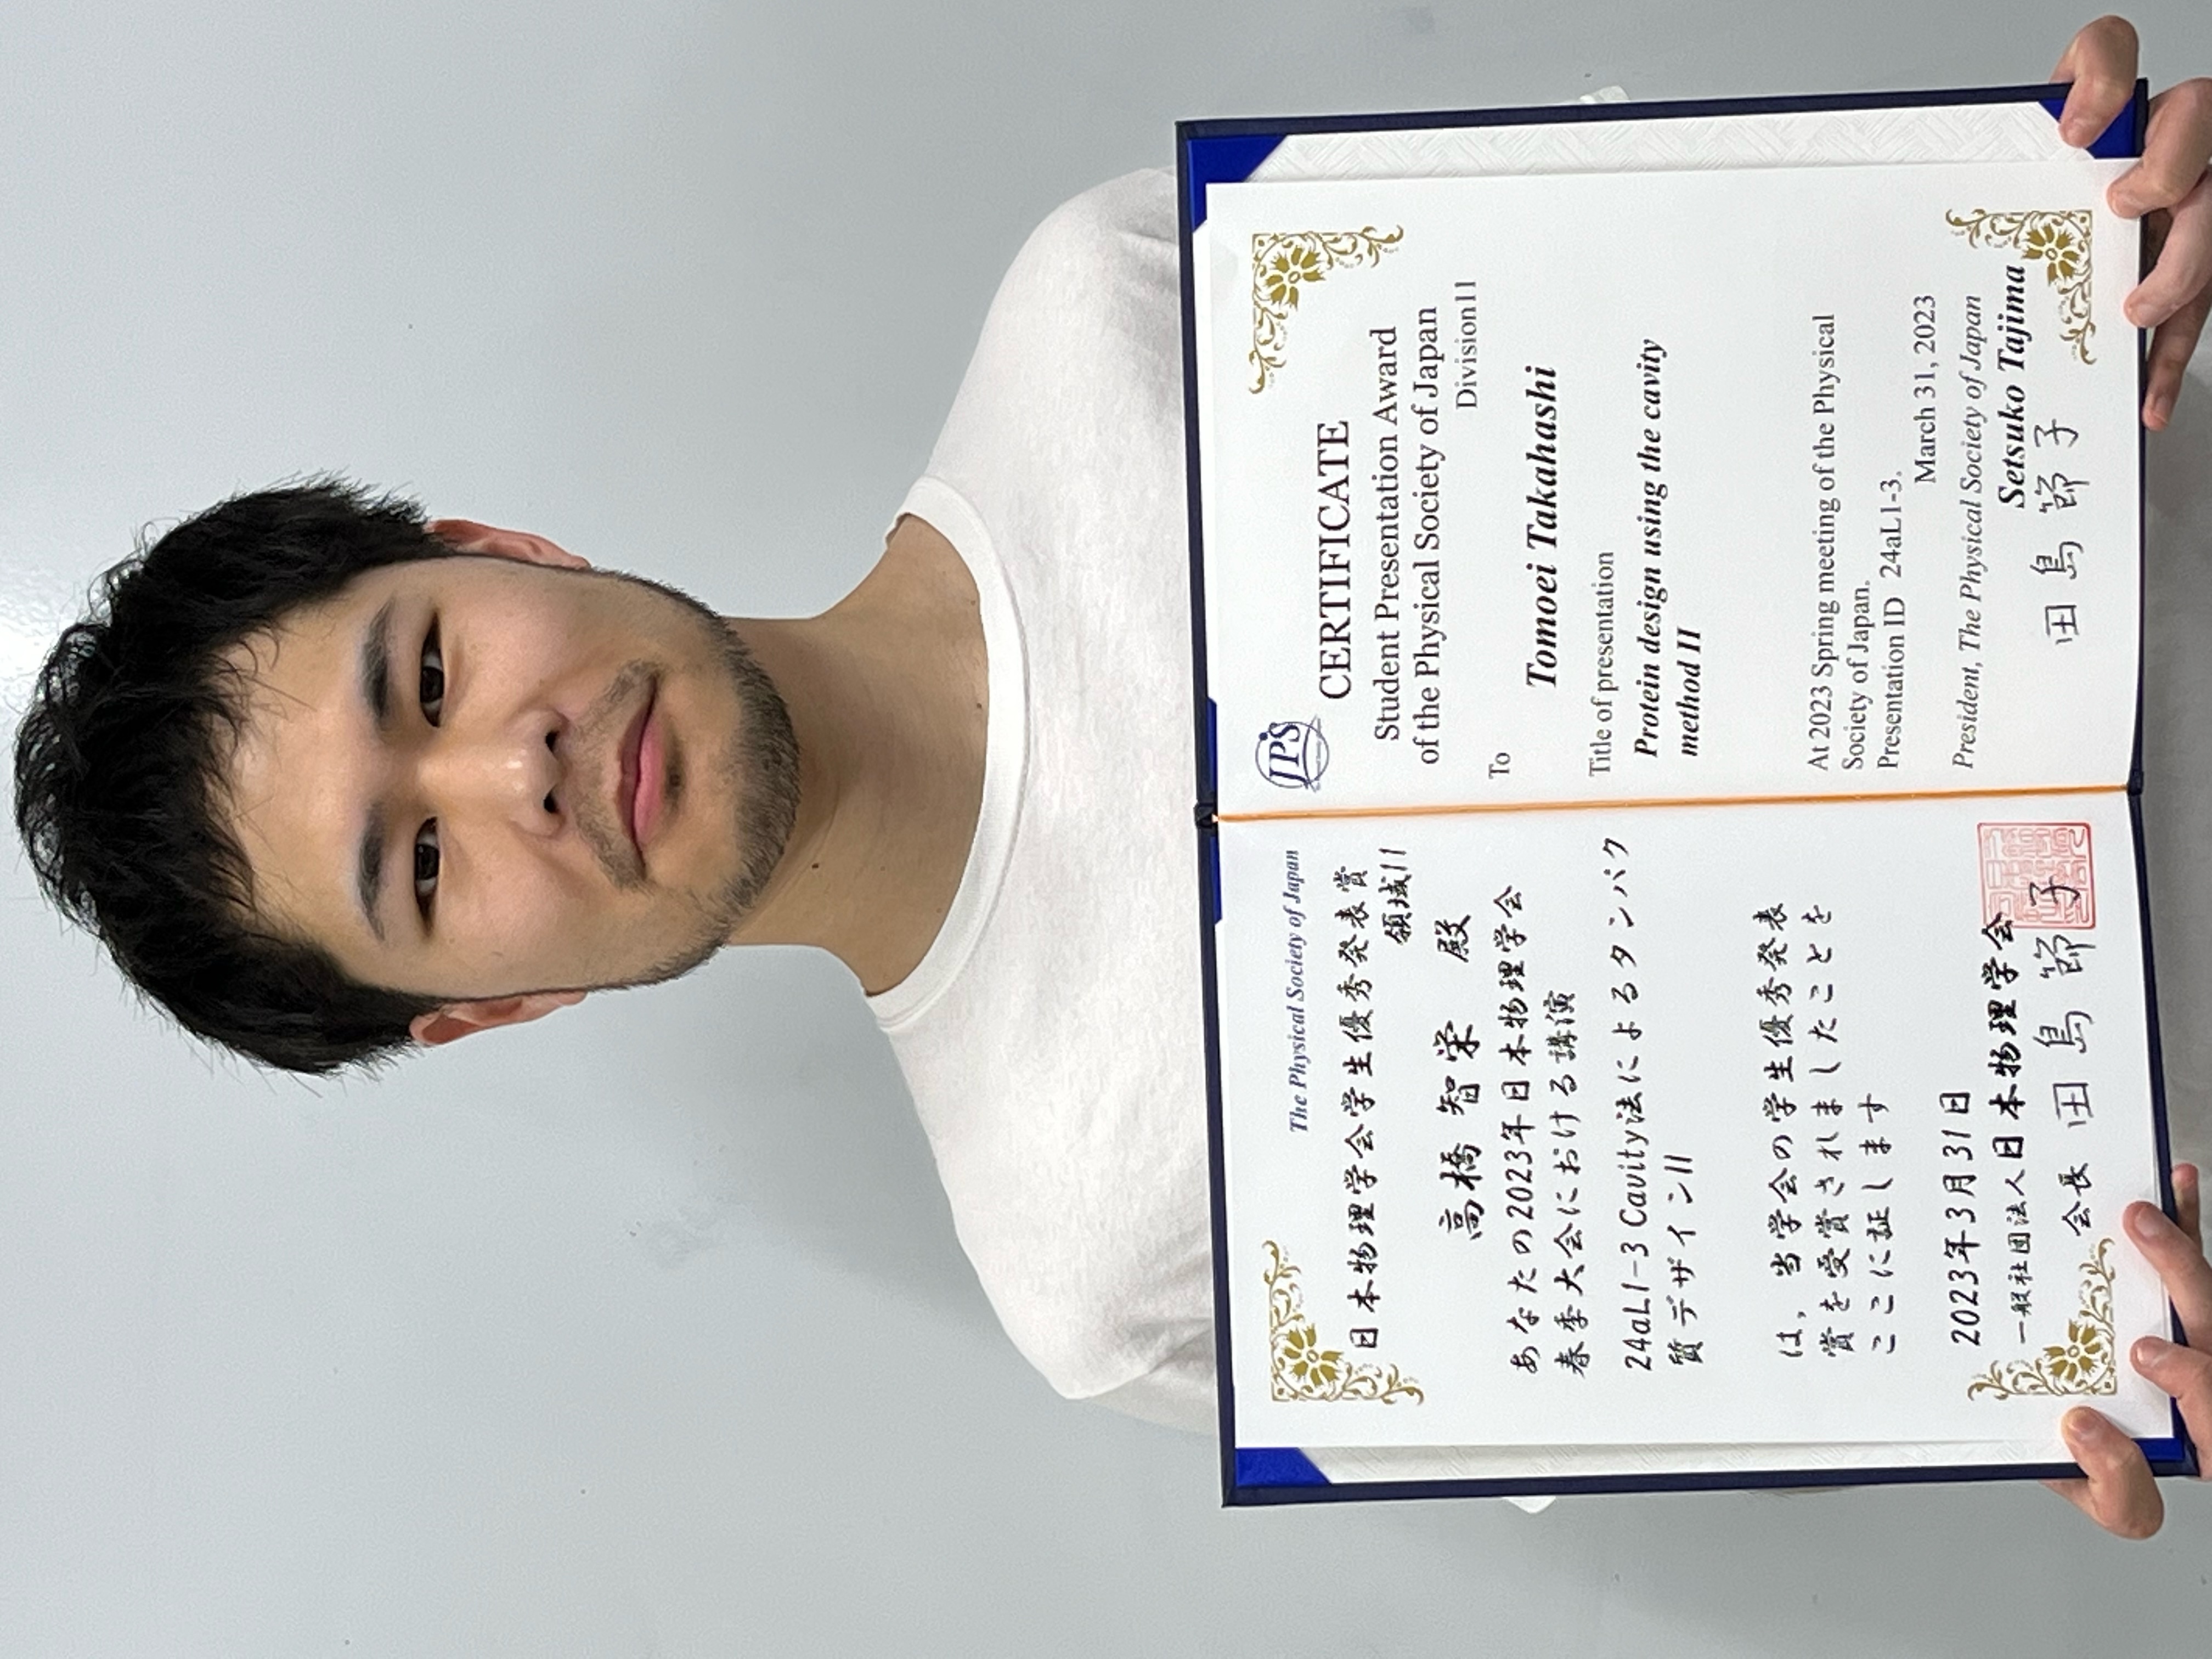 The Physical Society of Japan
日本物理学会学生優秀発表賞
領域11
高橋 智栄 殿
あなたの2023年日本物理学会
春季大会における講演
24aL1-3 Cavity法によるタンパク
質デザインII
は，当学会の学生優秀発表
賞を受賞されましたことを
ここに証します
2023年3月31日
一般社団法人日本物理学会
会長 田島節子
JPS
CERTIFICATE
Student Presentation Award
of the Physical Society of Japan
Division11
To
Tomoei Takahashi
Title of presentation
Protein design using the cavity
method II
At 2023 Spring meeting of the Physical
Society of Japan.
Presentation ID 24aL1-3.
March 31, 2023
President, The Physical Society of Japan
Setsuko Tajima
田島節子